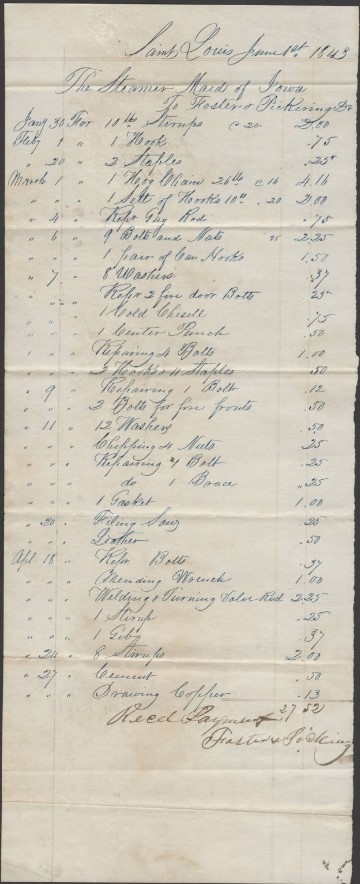 Saint Louis June 1st 1843
The Steamer Maid of Iowa
To Foster & Pickering Dr
Jany 30 For 10 lb Stirrups c 20 2.00
Feby 1 " 1 Hook .75
" 20 " 2 Staples .25
March 1 " 1 Hog Chain 26 lb c 16 4.16
" " " 1 Sett of Hooks 10 lb . 20 2.00
" 4 " Repr Guy Rod .75
" 6 " 9 Bolts and Nuts 25 2.25
" " " 1 pair of Can Hooks 1.50
" 7 " 8 Washers .37
" " " Repr 2 fire door Bolts .25
" " " 1 Cold Chisell .75
" " " 1 Center Punch .50
" " " Repairing 4 Bolts 1.00
" " " 2 Hooks & 4 Staples .50
" 9 " Repairing 1 Bolt .12
" " " 2 Bolts for fire fronts .50
" 11 " 12 Washers .50
" " " Chipping 4 Nuts .25
" " " Repairing 1 Bolt .25
" " " do 1 Brace .25
" " " 1 Gasket 1.00
" 20 " Filing Saw 20
" " " Leather .50
Apl 18 " Repr Bolts .37
" " " Mending Wrench 1.00
" " " Welding & Turning Valve Rod 2.25
" " " 1 Stirup .25
" " " 1 Gib .37
" 24 " 8 Stirups 2.00
" 27 " Cement .50
" " " Drawing Copper .13
Recd Payment 27 52
Foster & Pickering